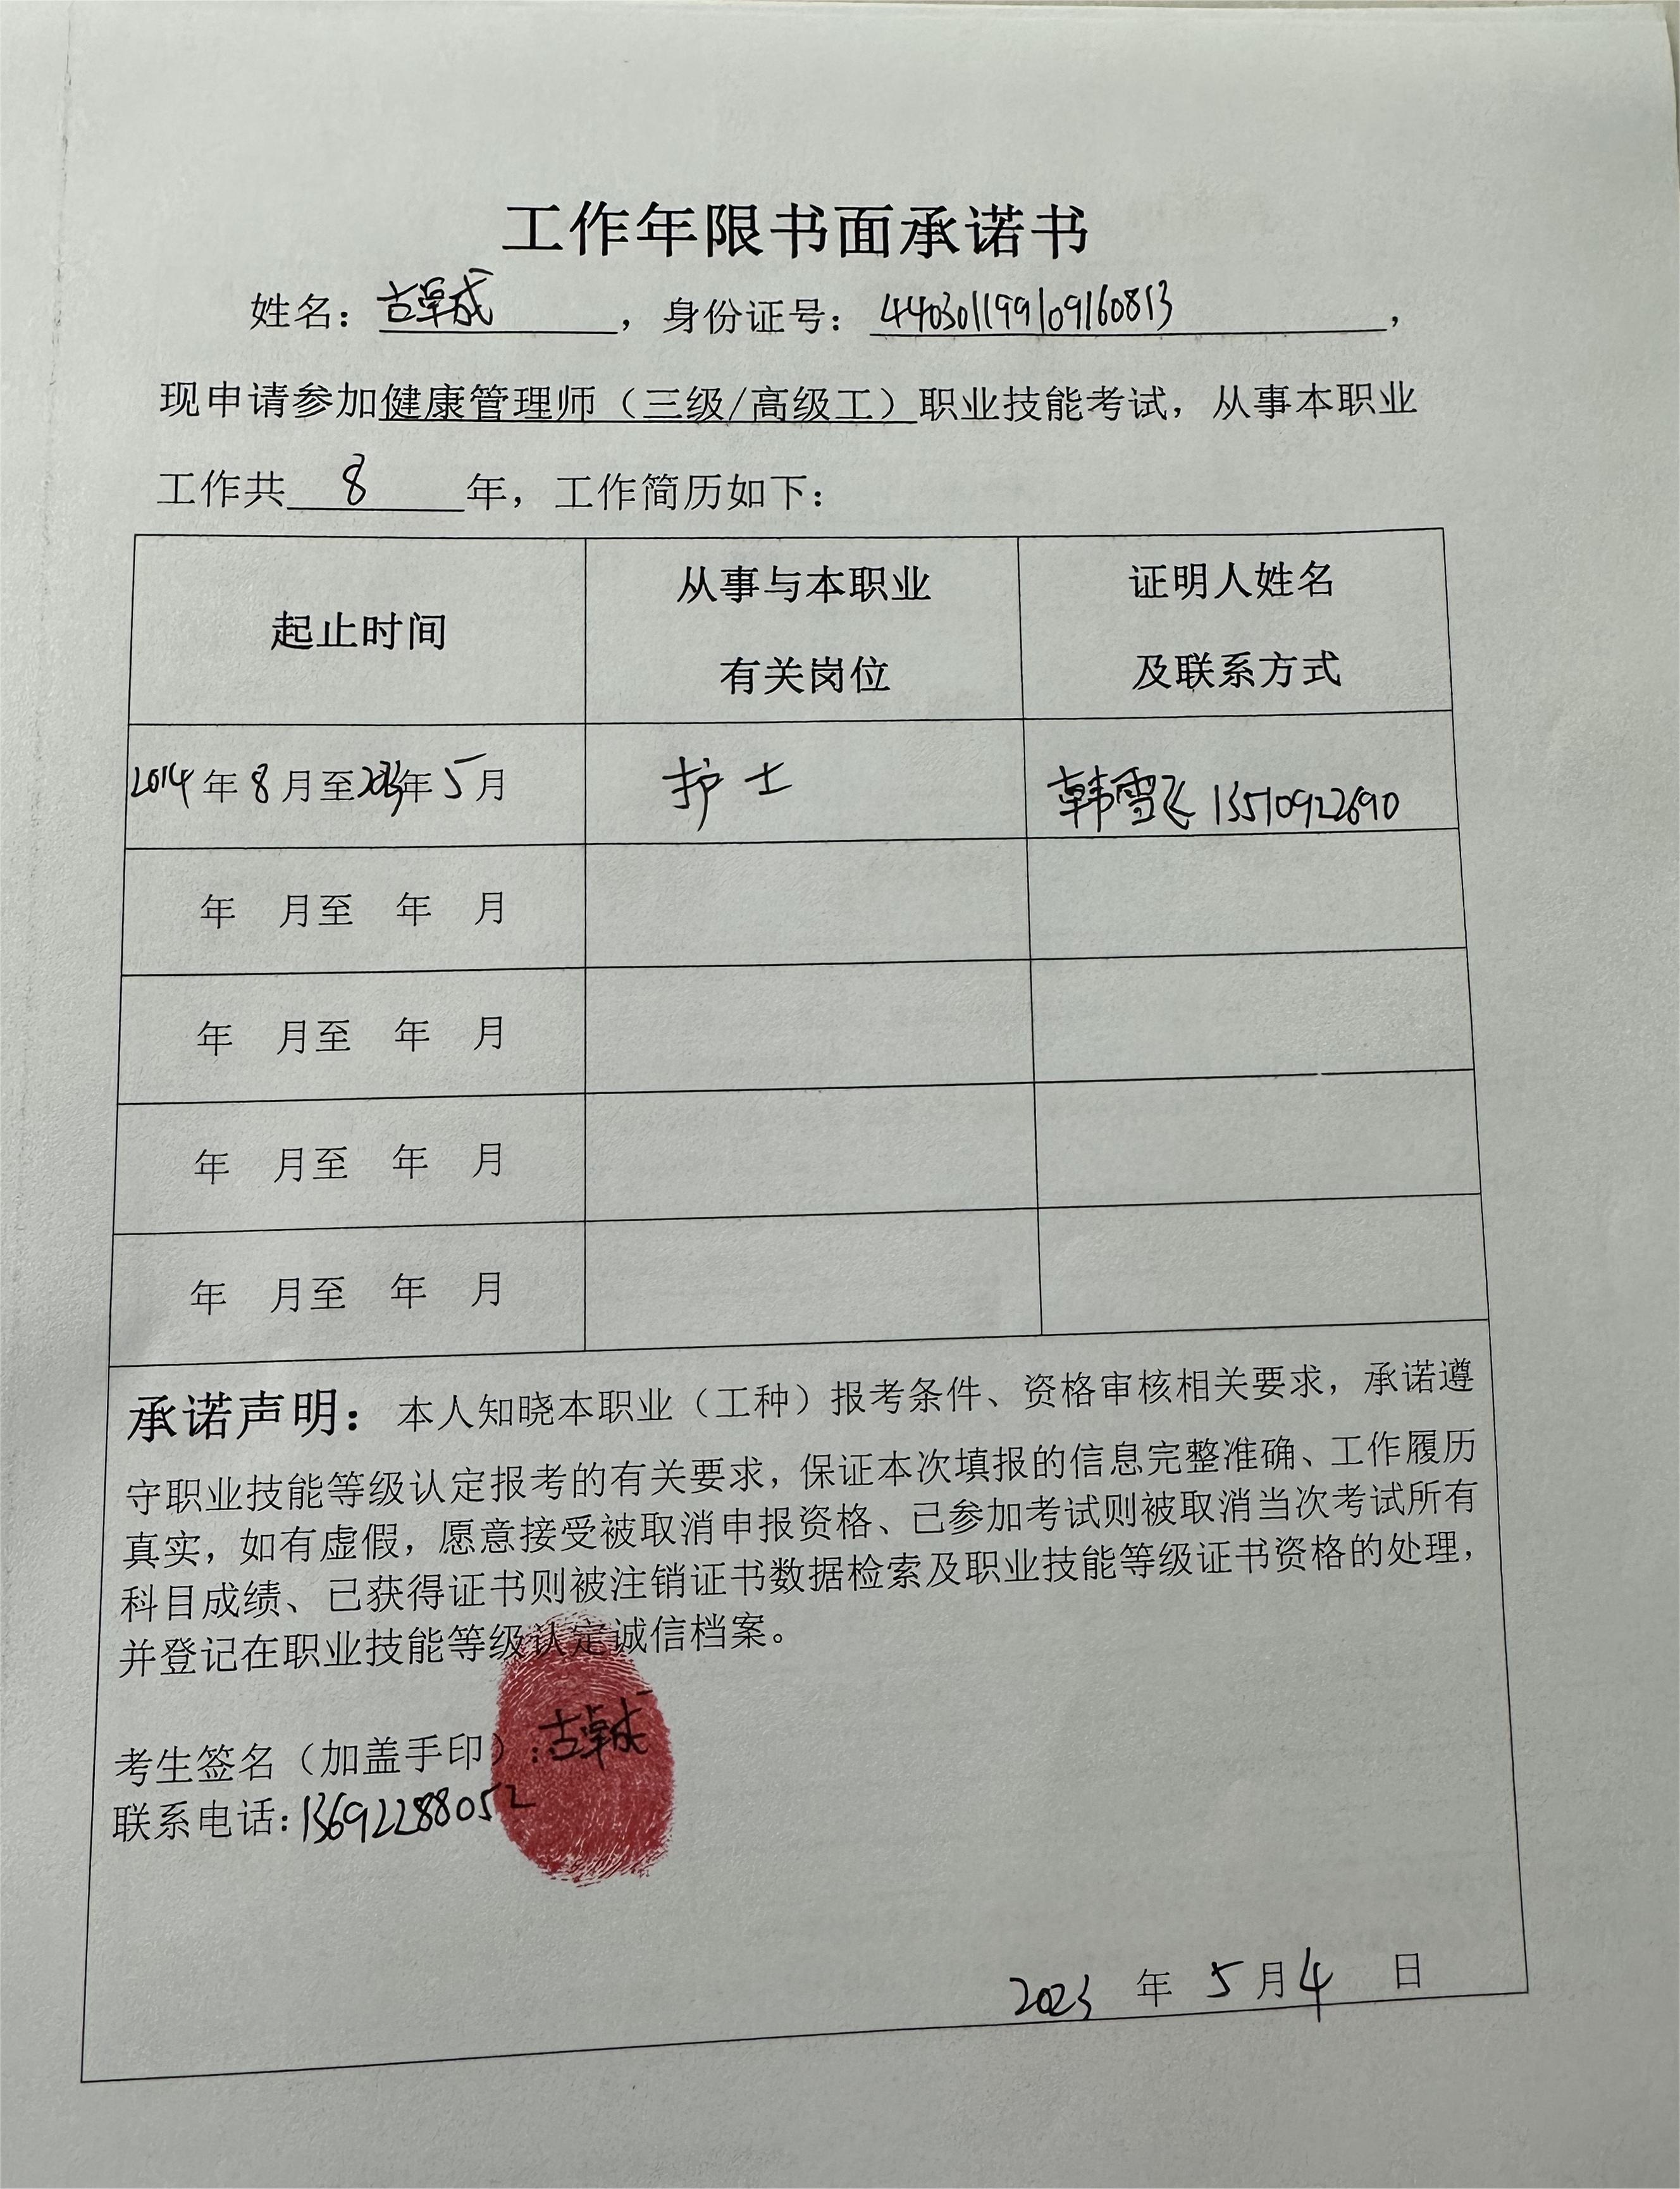 工作年限书面承诺书
姓名：古卓成，身份证号：440301199109160813，
现申请参加健康管理师（三级/高级工）职业技能考试，从事本职业
工作共 8 年，工作简历如下：
起止时间 从事与本职业有关岗位 证明人姓名及联系方式
2014年8月至2023年5月 护士 韩雪飞 13510922690
年 月至 年 月
年 月至 年 月
年 月至 年 月
年 月至 年 月
承诺声明：本人知晓本职业（工种）报考条件、资格审核相关要求，承诺遵
守职业技能等级认定报考的有关要求，保证本次填报的信息完整准确、工作履历
真实，如有虚假，愿意接受被取消申报资格、已参加考试则被取消当次考试所有
科目成绩、已获得证书则被注销证书数据检索及职业技能等级证书资格的处理，
并登记在职业技能等级认定诚信档案。
考生签名（加盖手印）:古卓成
联系电话:13692288052
2023 年 5 月 4 日